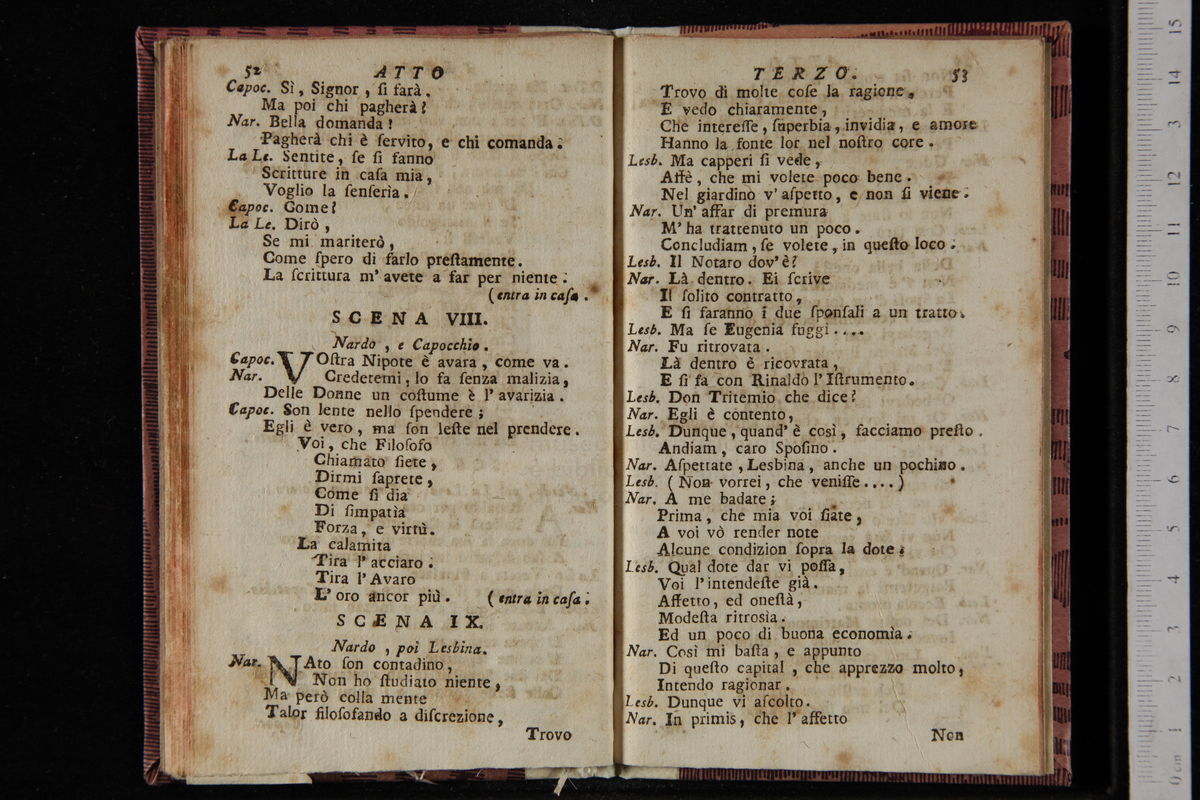 52 ATTO
Capoc. Sì, Signor, ſi farà.
Ma poi chi pagherà?
Nar. Bella domanda!
Pagherà chi è ſervito, e chi comanda.
La Le. Sentite, ſe ſi fanno
Scritture in caſa mia,
Voglio la ſenſerìa.
Capoc. Come?
La Le. Dirò,
Se mi mariterò,
Come ſpero di farlo preſtamente.
La ſcrittura m' avete a far per niente.
(entra in caſa.
SCENA VIII.
Nardo, e Capocchio.
Capoc. VOſtra Nipote è avara, come va.
Nar. Credetemi, lo fa ſenza malizia,
Delle Donne un coſtume è l' avarizia.
Capoc. Son lente nello ſpendere;
Egli è vero, ma ſon leſte nel prendere.
Voi, che Filoſofo
Chiamato ſiete,
Dirmi ſaprete,
Come ſi dia
Di ſimpatìa
Forza, e virtù.
La calamita
Tira l' acciaro.
Tira l' Avaro
L' oro ancor più. (entra in caſa.
SCENA IX.
Nardo, poi Lesbina.
Nar. NAto ſon contadino,
Non ho ſtudiato niente,
Ma però colla mente
Talor filoſofando a diſcrezione,
Trovo
TERZO. 53
Trovo di molte coſe la ragione,
E vedo chiaramente,
Che intereſſe, ſuperbia, invidia, e amore
Hanno la fonte lor nel noſtro core.
Lesb. Ma capperi ſi vede,
Affè, che mi volete poco bene.
Nel giardino v' aſpetto, e non ſi viene.
Nar. Un' affar di premura
M' ha trattenuto un poco.
Concludiam, ſe volete, in queſto loco.
Lesb. Il Notaro dov' è?
Nar. Là dentro. Ei ſcrive
Il ſolito contratto,
E ſi faranno i due ſponſali a un tratto.
Lesb. Ma ſe Eugenia fuggì....
Nar. Fu ritrovata.
Là dentro è ricovrata,
E ſi fa con Rinaldo l' Iſtrumento.
Lesb. Don Tritemio che dice?
Nar. Egli è contento,
Lesb. Dunque, quand' è così, facciamo preſto.
Andiam, caro Spoſino.
Nar. Aſpettate, Lesbina, anche un pochino.
Lesb. (Non vorrei, che veniſſe....)
Nar. A me badate;
Prima, che mia voi ſiate,
A voi vò render note
Alcune condizion ſopra la dote.
Lesb. Qual dote dar vi poſſa,
Voi l' intendeſte già.
Affetto, ed oneſtà,
Modeſta ritrosìa.
Ed un poco di buona economìa.
Nar. Così mi baſta, e appunto
Di queſto capital, che apprezzo molto,
Intendo ragionar.
Lesb. Dunque vi aſcolto.
Nar. In primis, che l' affetto
Non